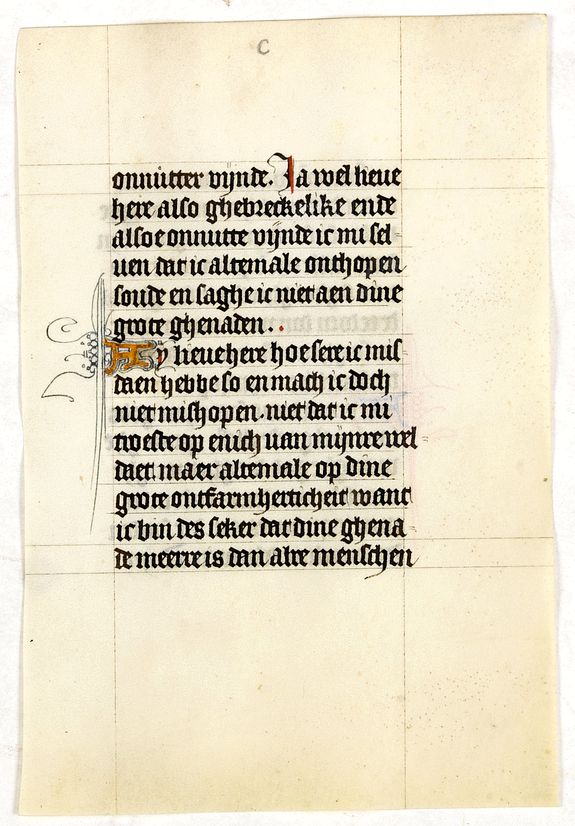 c
onnutter vynde. Ja wel lieue
here also ghebreckelike ende
alsoe onnutte vynde ic mi sel
uen dat ic altemale onthopen
soude en saghe ic niet aen dine
grote ghenaden..
Ay lieue here hoe sere ic mis
daen hebbe so en mach ic doch
niet mishopen. niet dat ic mi
troeste op enich uan mijnre wel
daet. maer altemale op dine
grote ontfarmherticheit want
ic bin des seker dat dine ghena
de meerre is dan alre menschen